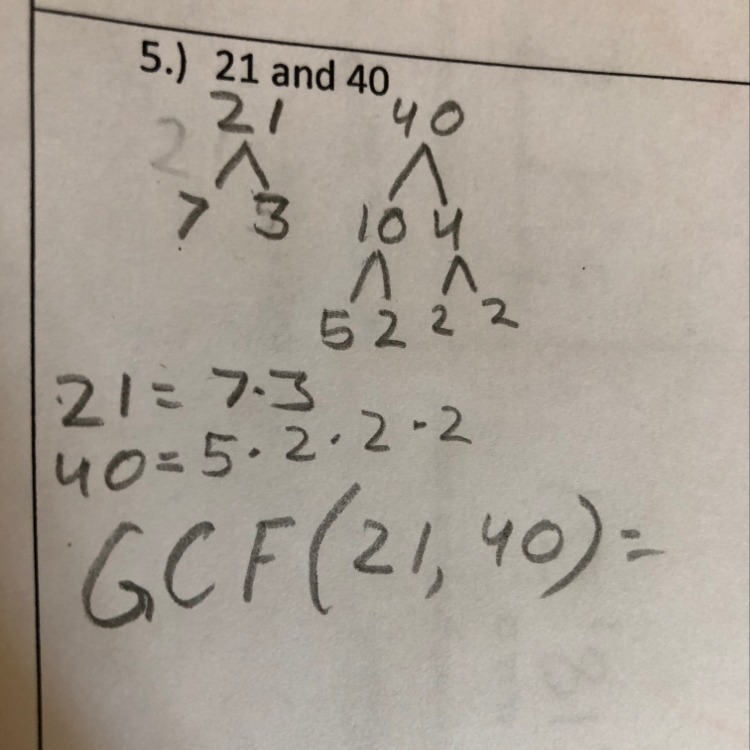 5.) 21 and 40
21 40
7 3 10 4
5 2 2 2
21 = 7·3
40 = 5·2·2·2
GCF(21, 40) =